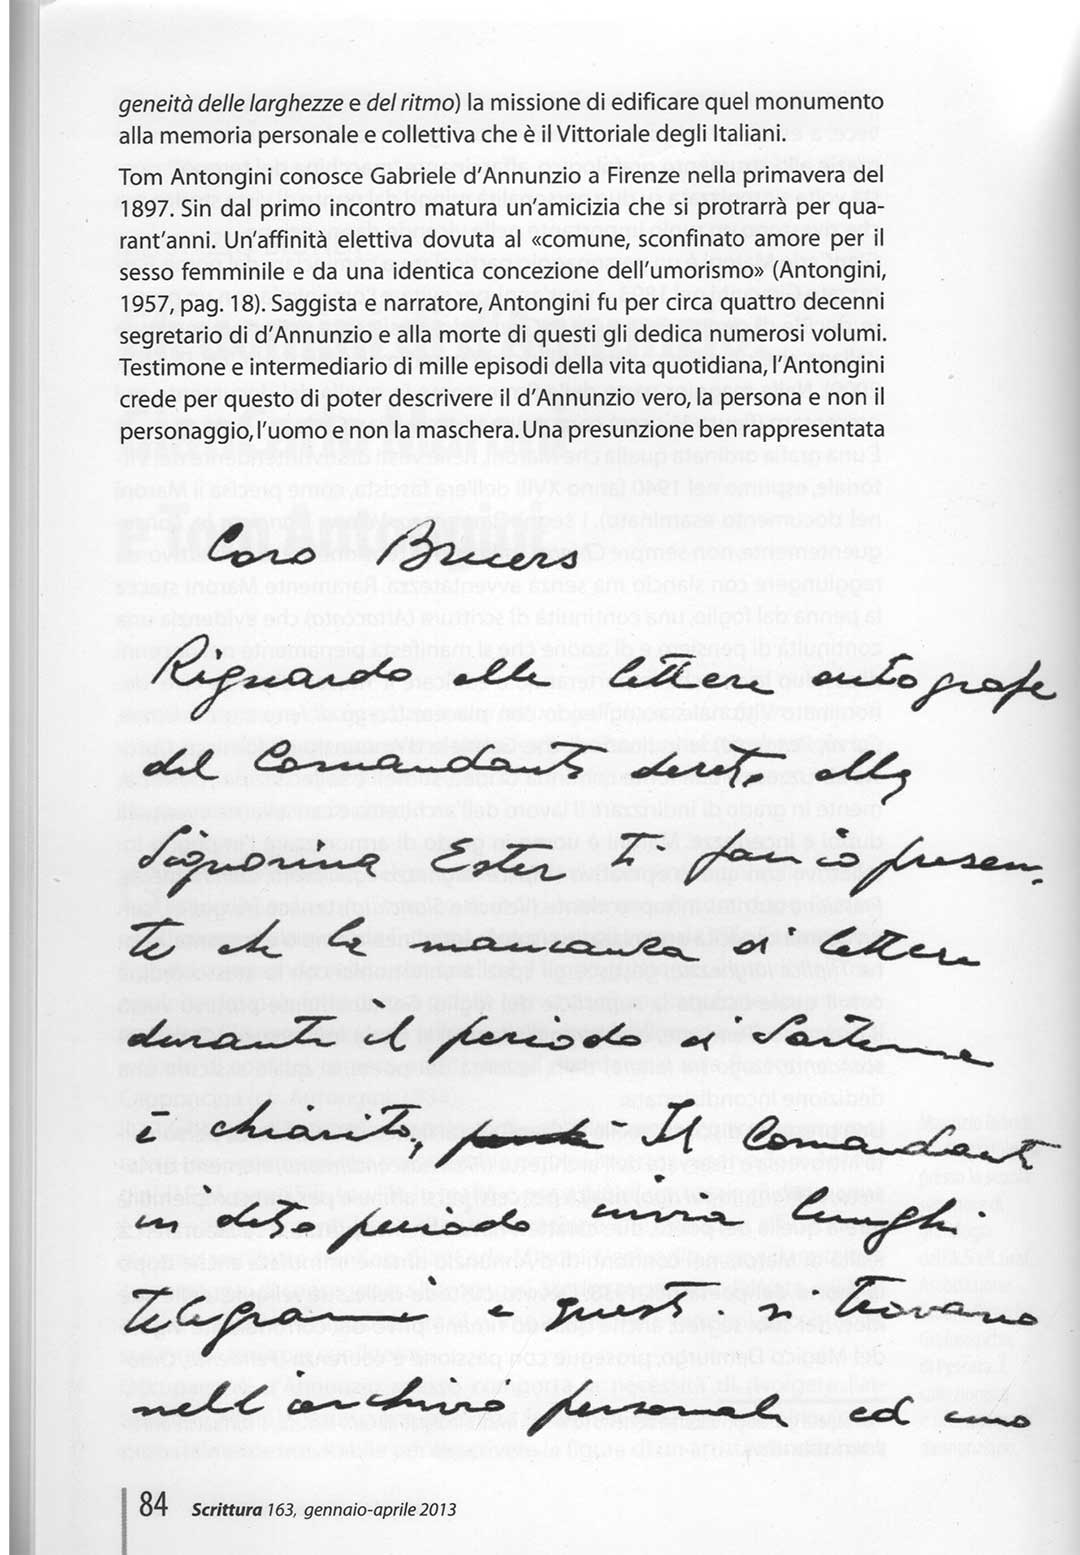 geneità delle larghezze e del ritmo) la missione di edificare quel monumento
alla memoria personale e collettiva che è il Vittoriale degli Italiani.
Tom Antongini conosce Gabriele d'Annunzio a Firenze nella primavera del
1897. Sin dal primo incontro matura un'amicizia che si protrarrà per qua-
rant'anni. Un'affinità elettiva dovuta al «comune, sconfinato amore per il
sesso femminile e da una identica concezione dell'umorismo» (Antongini,
1957, pag. 18). Saggista e narratore, Antongini fu per circa quattro decenni
segretario di d'Annunzio e alla morte di questi gli dedica numerosi volumi.
Testimone e intermediario di mille episodi della vita quotidiana, l'Antongini
crede per questo di poter descrivere il d'Annunzio vero, la persona e non il
personaggio, l'uomo e non la maschera. Una presunzione ben rappresentata
Caro Bruers
Riguardo alle lettere autografe
del Comandante dirette alla
Signorina Ester Ti faccio presen-
te che la mancanza di lettere
durante il periodo di
è chiarito, Il Comandante
in detto periodo inviò lunghi
telegrammi e questi si trovano
nell'archivio personale ed uno
84 Scrittura 163, gennaio-aprile 2013